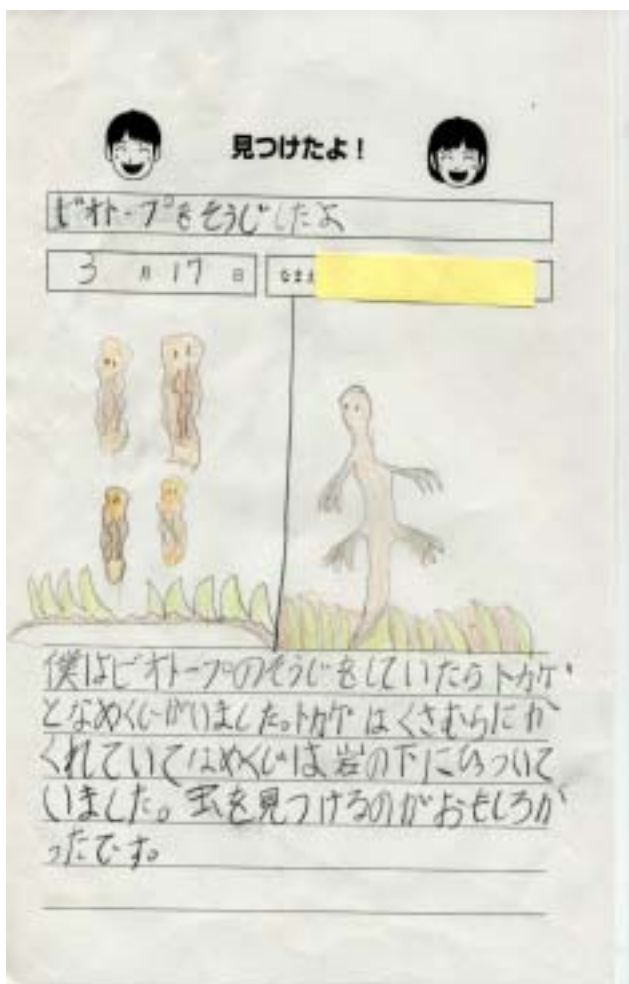 見つけたよ!
ビオトープをそうじしたよ
3月17日 なまえ
僕はビオトープのそうじをしていたらトカゲ
となめくじがいました。トカゲはくさむらにか
くれていてなめくじは岩の下にひっついて
いました。虫を見つけるのがおもしろか
ったです。